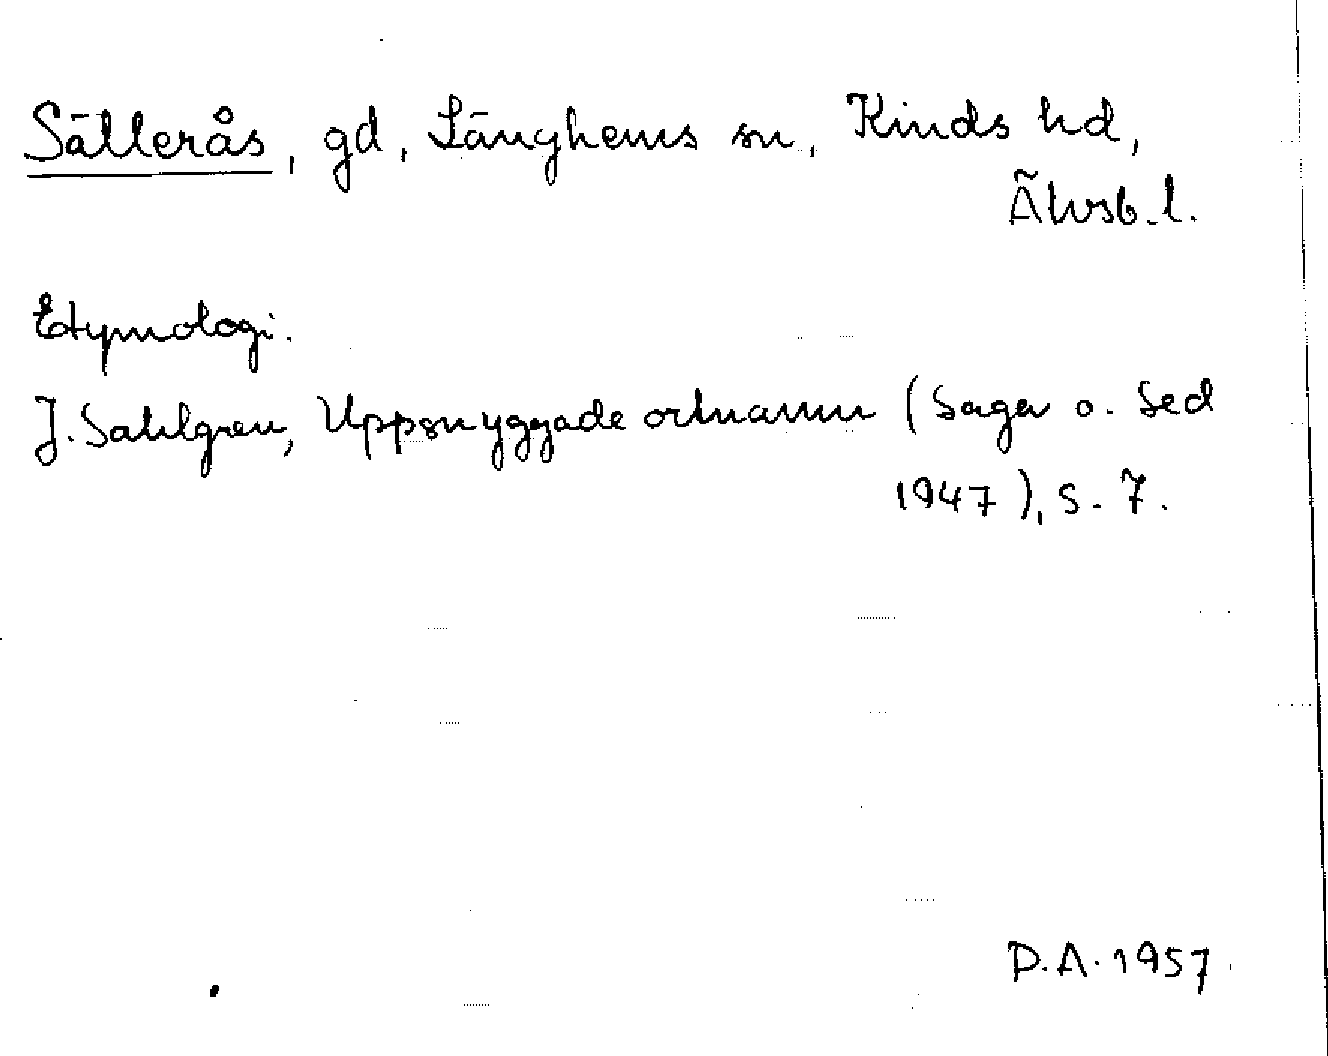 Sällerås, gd, Länghems sn, Kinds hd,
Älvsb. l.
Etymologi.
J. Sahlgren, Uppsnyggade ortnamn (Saga o. Sed
1947), s. 7.
D.A. 1957.